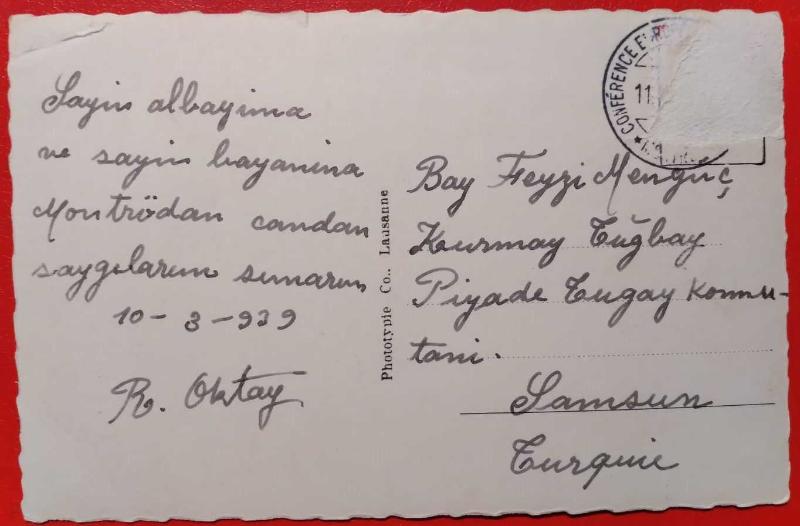 Sayin albayima
ve sayin bayanina
Montrödan candan
saygılarım sunarım
10-3-939
R. Oktay
Phototypie Co., Lausanne
CONFÉRENCE
11
Bay Feyzi Mengüç
Kurmay Tuğbay
Piyade Tugay Kommu-
tani.
Samsun
Turquie